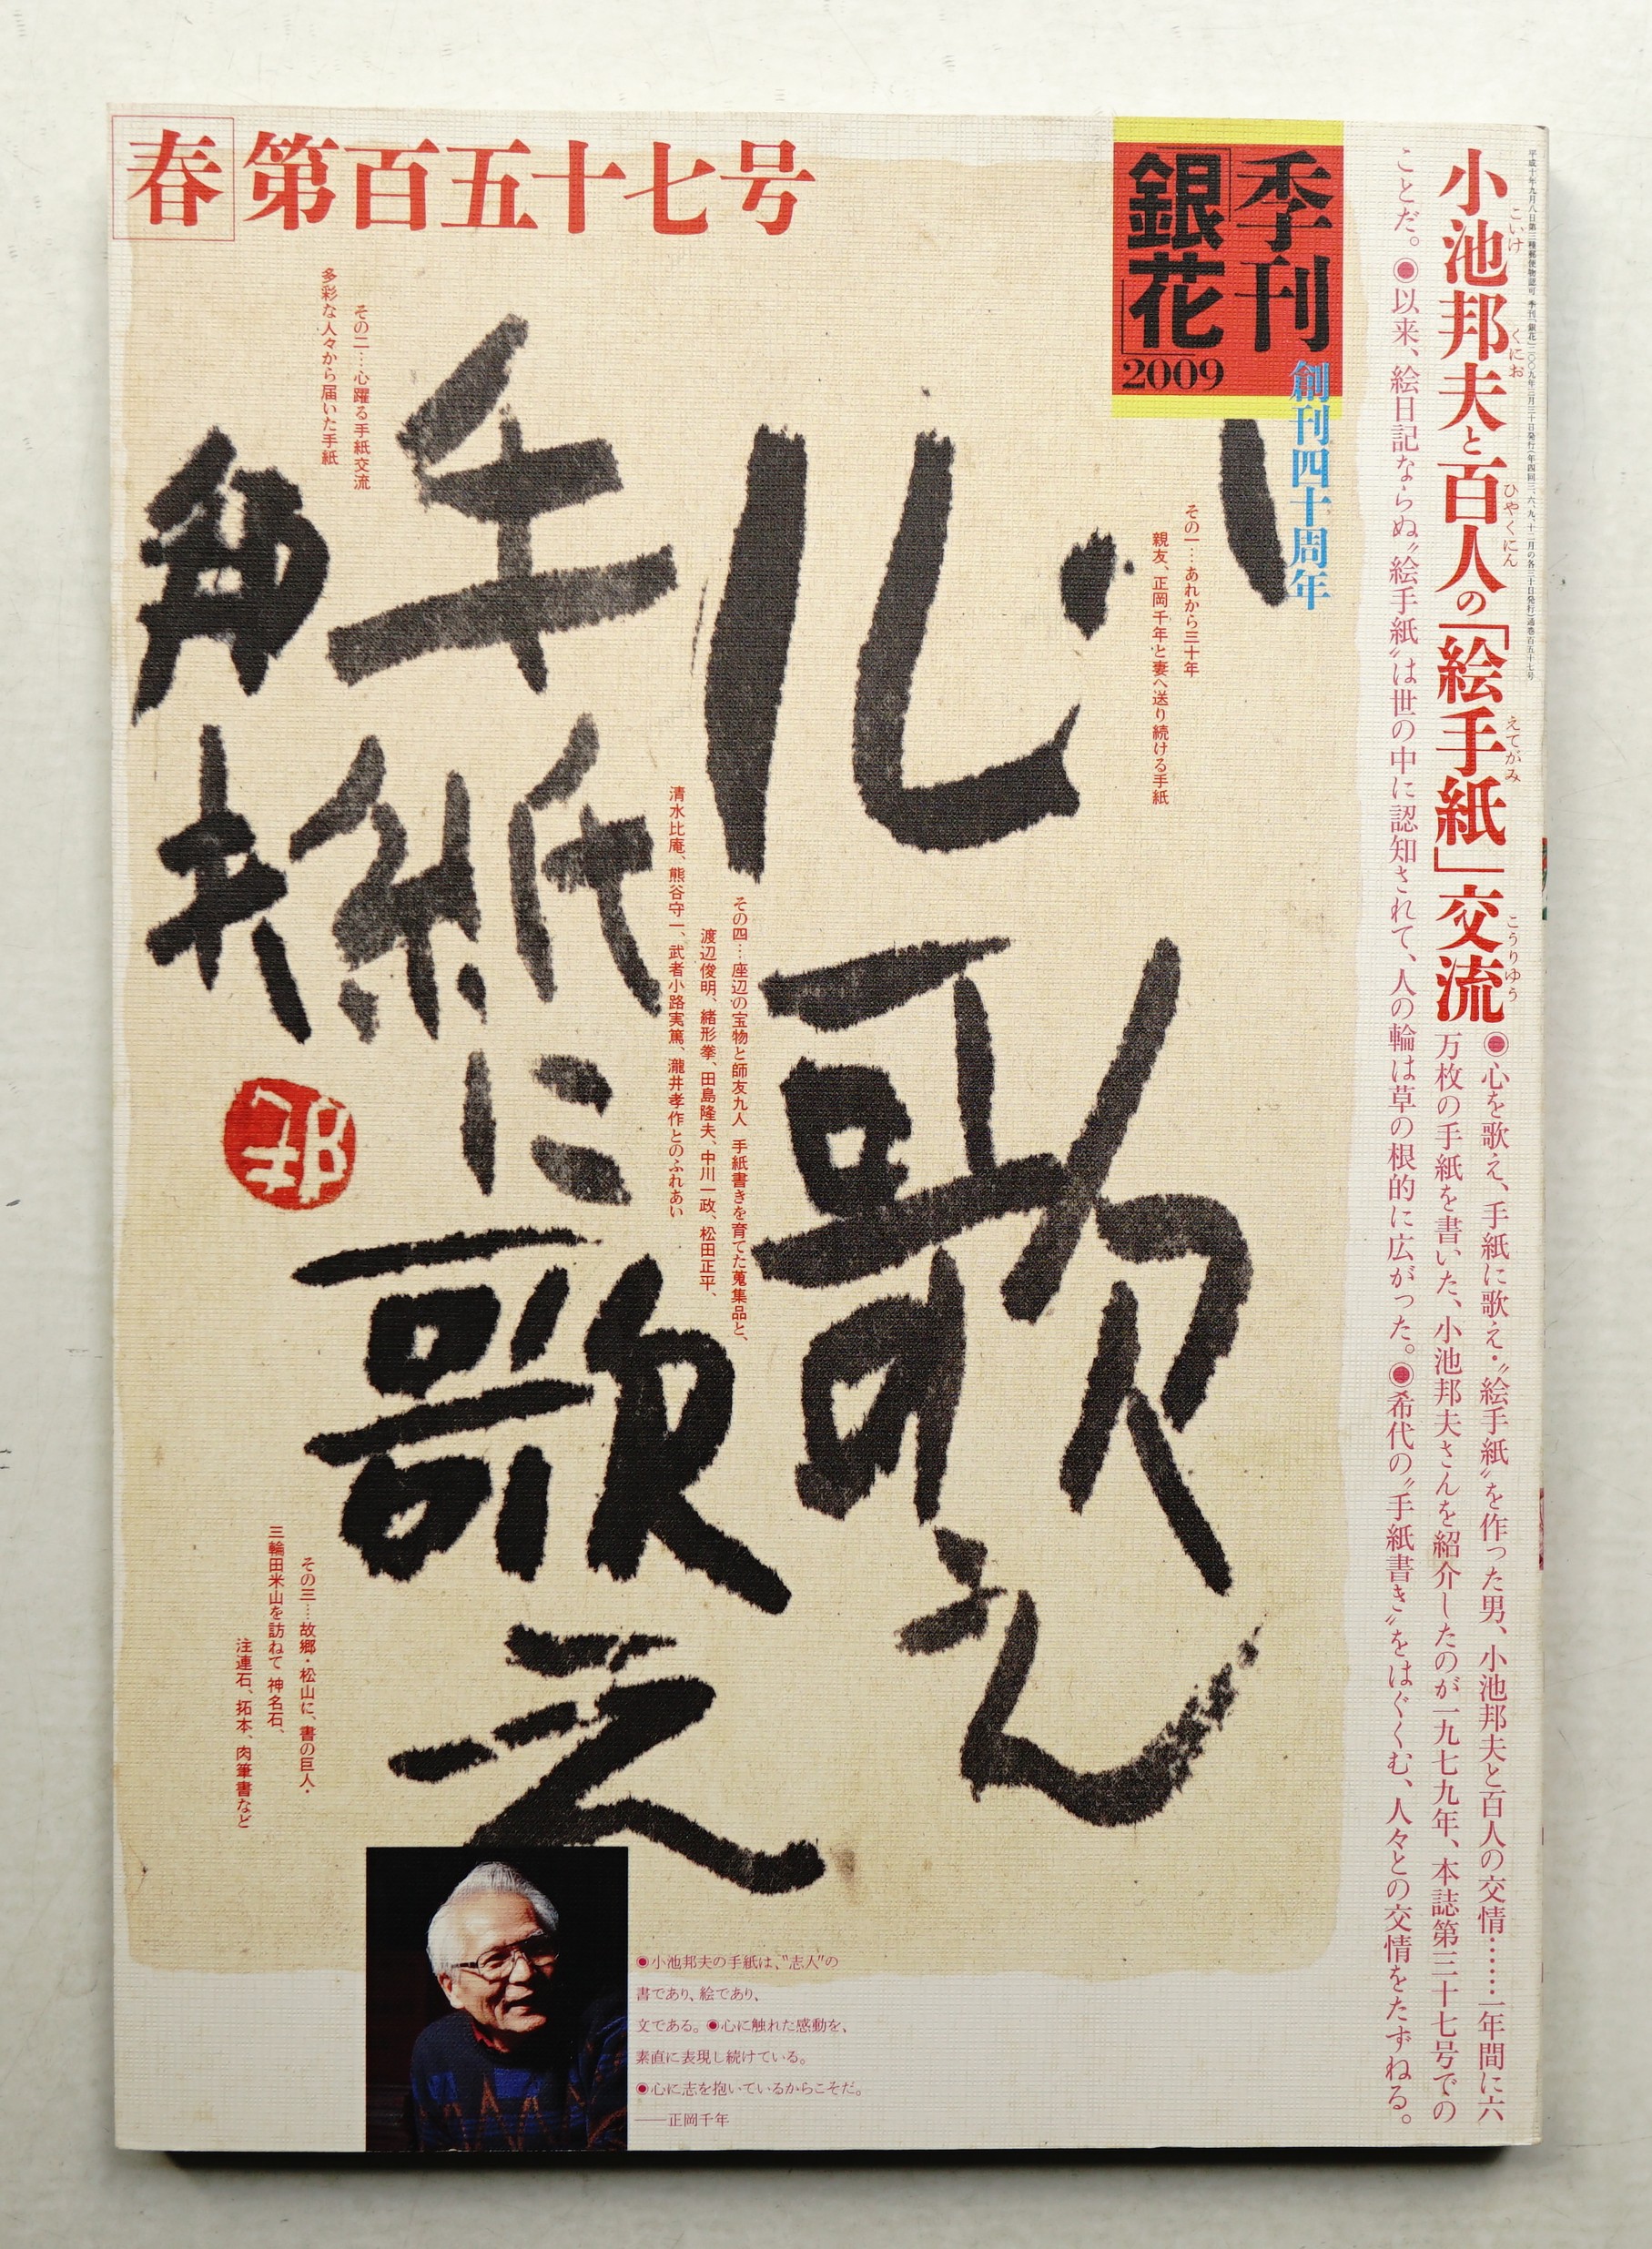 春 第百五十七号
季刊
「銀花」
2009
創刊四十周年
平成十年九月八日第三種郵便物認可 季刊「銀花」二〇〇九年三月三十日発行(年四回三、六、九、十二月の各三十日発行)通巻百五十七号
小池邦夫と百人の「絵手紙」交流
こいけ くにお ひやくにん えてがみ こうりゆう
◉心を歌え、手紙に歌え・〝絵手紙〟を作った男、小池邦夫と百人の交情……一年間に六
万枚の手紙を書いた、小池邦夫さんを紹介したのが一九七九年、本誌第三十七号での
ことだ。◉以来、絵日記ならぬ〝絵手紙〟は世の中に認知されて、人の輪は草の根的に広がった。◉希代の〝手紙書き〟をはぐくむ、人々との交情をたずねる。
その一…あれから三十年
親友、正岡千年と妻へ送り続ける手紙
心
歌え
手紙に歌え
邦夫
邦
その二…心躍る手紙交流
多彩な人々から届いた手紙
その四…座辺の宝物と師友九人 手紙書きを育てた蒐集品と、
渡辺俊明、緒形拳、田島隆夫、中川一政、松田正平、
清水比庵、熊谷守一、武者小路実篤、瀧井孝作とのふれあい
その三…故郷・松山に、書の巨人・
三輪田米山を訪ねて 神名石、
注連石、拓本、肉筆書など
◉小池邦夫の手紙は、〝志人〟の
書であり、絵であり、
文である。◉心に触れた感動を、
素直に表現し続けている。
◉心に志を抱いているからこそだ。
――正岡千年